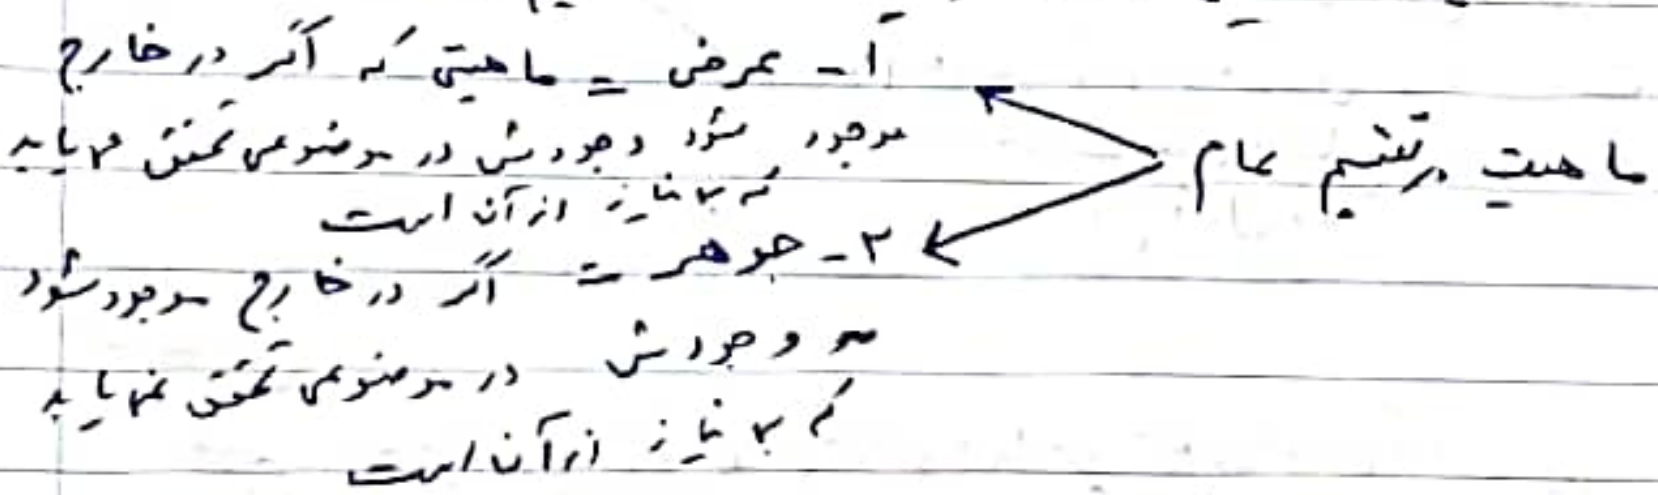 ماهیت در تقسیم عام
۱- عرض = ماهیتی که اگر در خارج
موجود شود وجودش در موضوعی تحقق می‌یابد
که بی نیاز از آن است
۲- جوهر = اگر در خارج موجود شود
وجودش در موضوعی تحقق نمی‌یابد
که بی نیاز از آن است